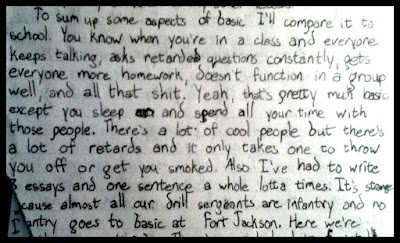 To sum up some aspects of basic I'll compare it to
school. You know when you're in a class and everyone
keeps talking, asks retarded questions constantly, gets
everyone more homework, doesn't function in a group
well, and all that shit. Yeah, that's pretty much basic
except you sleep and spend all your time with
those people. There's a lot of cool people but there's
a lot of retards and it only takes one to throw
you off or get you smoked. Also I've had to write
3 essays and one sentence a whole lotta times. It's strange
cause almost all our drill sergeants are infantry and no
antry goes to basic at Fort Jackson. Here we're